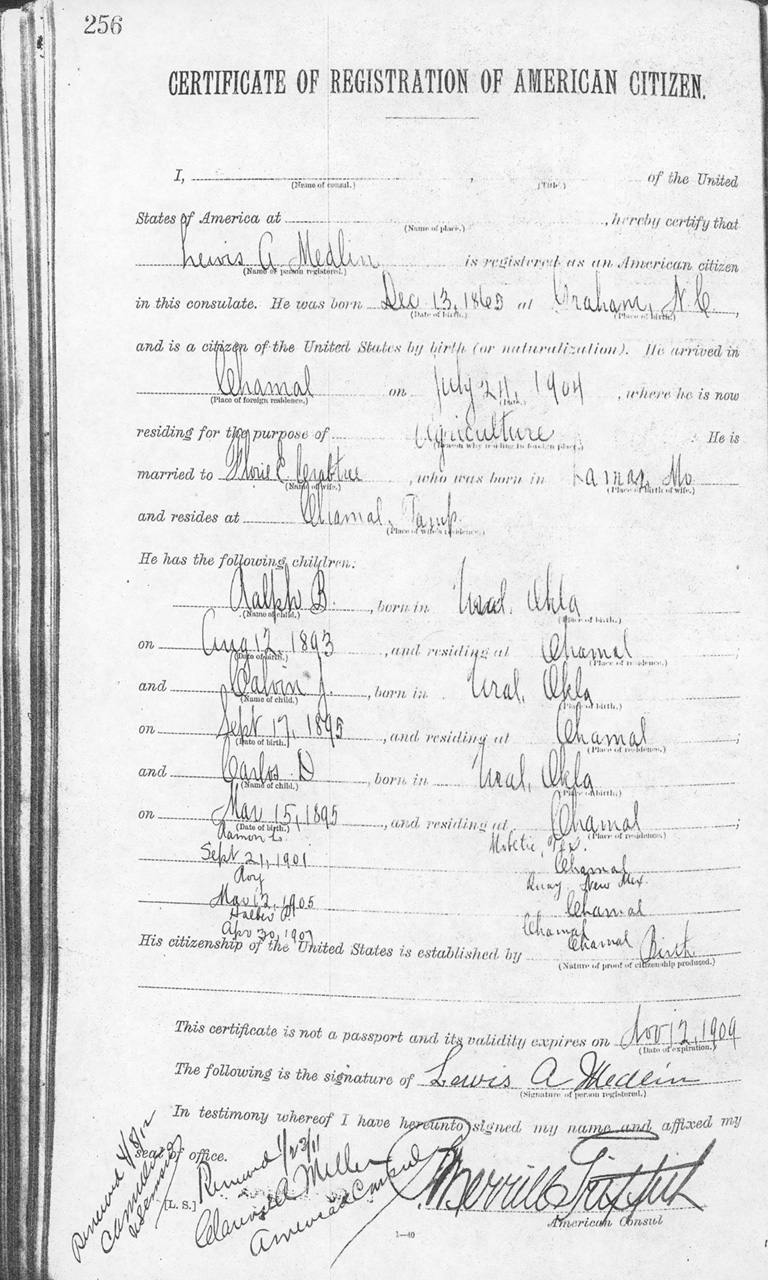 256
CERTIFICATE OF REGISTRATION OF AMERICAN CITIZEN.
I, , of the United
(Name of consul.) (Title.)
States of America at , hereby certify that
(Name of place.)
Lewis A Medlin is registered as an American citizen
(Name of person registered.)
in this consulate. He was born Dec 13, 1865 at Graham, N.C.,
(Date of birth.) (Place of birth.)
and is a citizen of the United States by birth (or naturalization). He arrived in
Chamal on July 24, 1904, where he is now
(Place of foreign residence.) (Date.)
residing for the purpose of Agriculture. He is
(Reason why residing in foreign place.)
married to Florie E. Crabtree, who was born in Lamar, Mo
(Name of wife.) (Place of birth of wife.)
and resides at Chamal, Tamp.
(Place of wife's residence.)
He has the following children:
Ralph B., born in Ural, Okla
(Name of child.) (Place of birth.)
on Aug 12, 1893, and residing at Chamal;
(Date of birth.) (Place of residence.)
and Calvin J., born in Ural, Okla
(Name of child.) (Place of birth.)
on Sept 17, 1895, and residing at Chamal;
(Date of birth.) (Place of residence.)
and Carlos D, born in Ural, Okla
(Name of child.) (Place of birth.)
on Mar 15, 1895, and residing at Chamal;
(Date of birth.) (Place of residence.)
Ramon L. Mobetie, Tex.
Sept 21, 1901 Chamal
Roy Quay New Mex.
Mar 12, 1905 Chamal
Chamal
Apr 30, 1907 Chamal
His citizenship of the United States is established by Birth.
(Nature of proof of citizenship produced.)
This certificate is not a passport and its validity expires on Nov 12, 1909
(Date of expiration.)
The following is the signature of Lewis A Medlin
(Signature of person registered.)
In testimony whereof I have hereunto signed my name and affixed my
seal of office.
Renewed 4/8/12
Renewed 1/23/11
Clarence A Miller
American Consul
[L. S.]
P. Merrill Griffith
American Consul
1—40